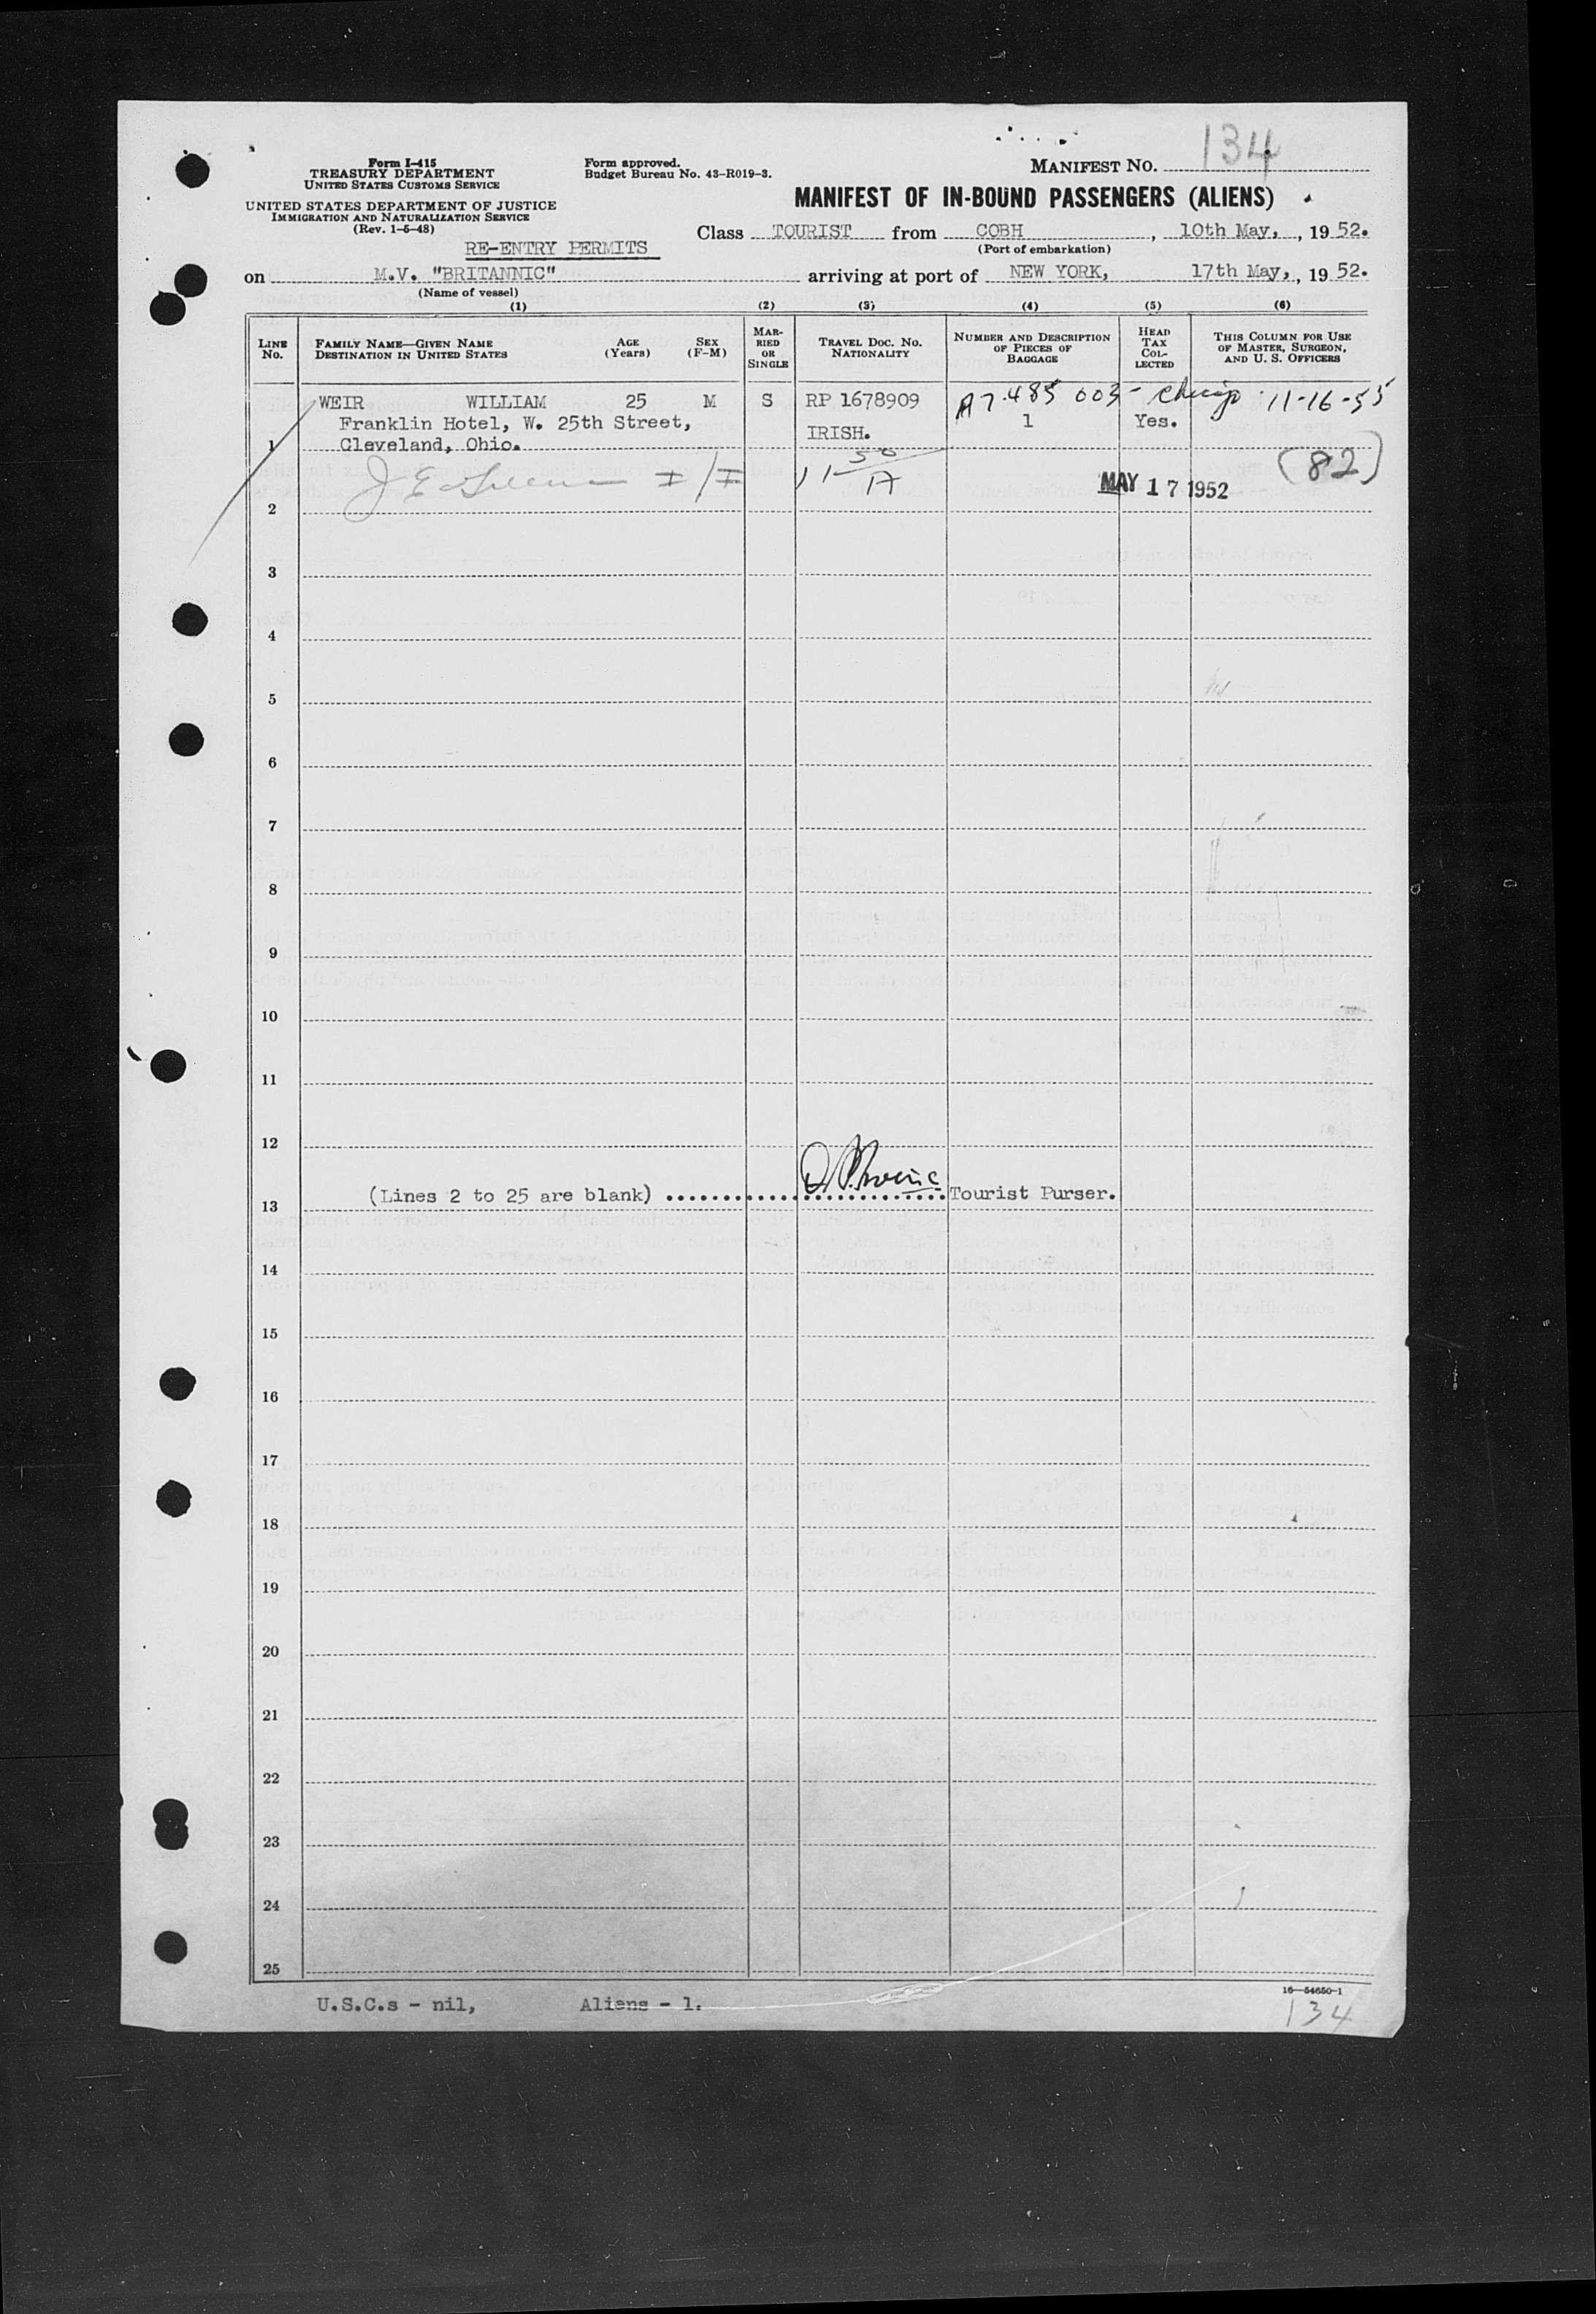 134
Form I-415
TREASURY DEPARTMENT
UNITED STATES CUSTOMS SERVICE
Form approved.
Budget Bureau No. 43-R019-3.
MANIFEST NO.
UNITED STATES DEPARTMENT OF JUSTICE
IMMIGRATION AND NATURALIZATION SERVICE
(Rev. 1-5-48)
MANIFEST OF IN-BOUND PASSENGERS (ALIENS)
RE-ENTRY PERMITS
Class TOURIST from COBH, 10th May, , 19 52.
(Port of embarkation)
on M.V. "BRITANNIC" arriving at port of NEW YORK, 17th May, , 19 52.
(Name of vessel)
(1) (2) (3) (4) (5) (6)
LINE No.
FAMILY NAME—GIVEN NAME
DESTINATION IN UNITED STATES
AGE (Years)
SEX (F-M)
MARRIED OR SINGLE
TRAVEL DOC. NO. NATIONALITY
NUMBER AND DESCRIPTION OF PIECES OF BAGGAGE
HEAD TAX COLLECTED
THIS COLUMN FOR USE OF MASTER, SURGEON, AND U. S. OFFICERS
WEIR WILLIAM 25 M S RP 1678909 A7.485 003 - 11-16-55
Franklin Hotel, W. 25th Street, 1 Yes.
IRISH.
1 Cleveland, Ohio.
(82)
MAY 17 1952
2
3
4
5
6
7
8
9
10
11
12
(Lines 2 to 25 are blank) Tourist Purser.
13
14
15
16
17
18
19
20
21
22
23
24
25
U.S.C.s - nil, Aliens - 1.
16—54650-1
134